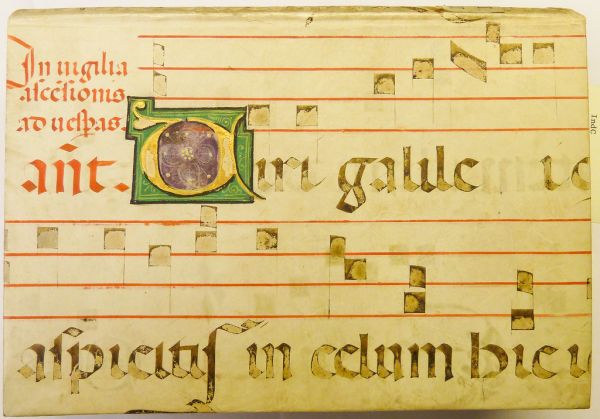 In uigilia
aſcēſionis
ad ueſpas.
an̄t. Uiri galile
aſpicitiſ in celum hic